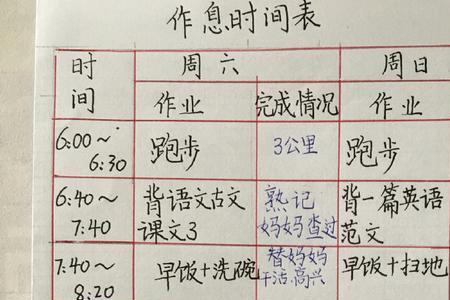 作息时间表
时间 周六 周日
作业 完成情况 作业
6:00~6:30 跑步 3公里 跑步
6:40~7:40 背语文古文课文3 熟记妈妈查过 背一篇英语范文
7:40~8:20 早饭+洗碗 替妈妈干活,高兴 早饭+扫地